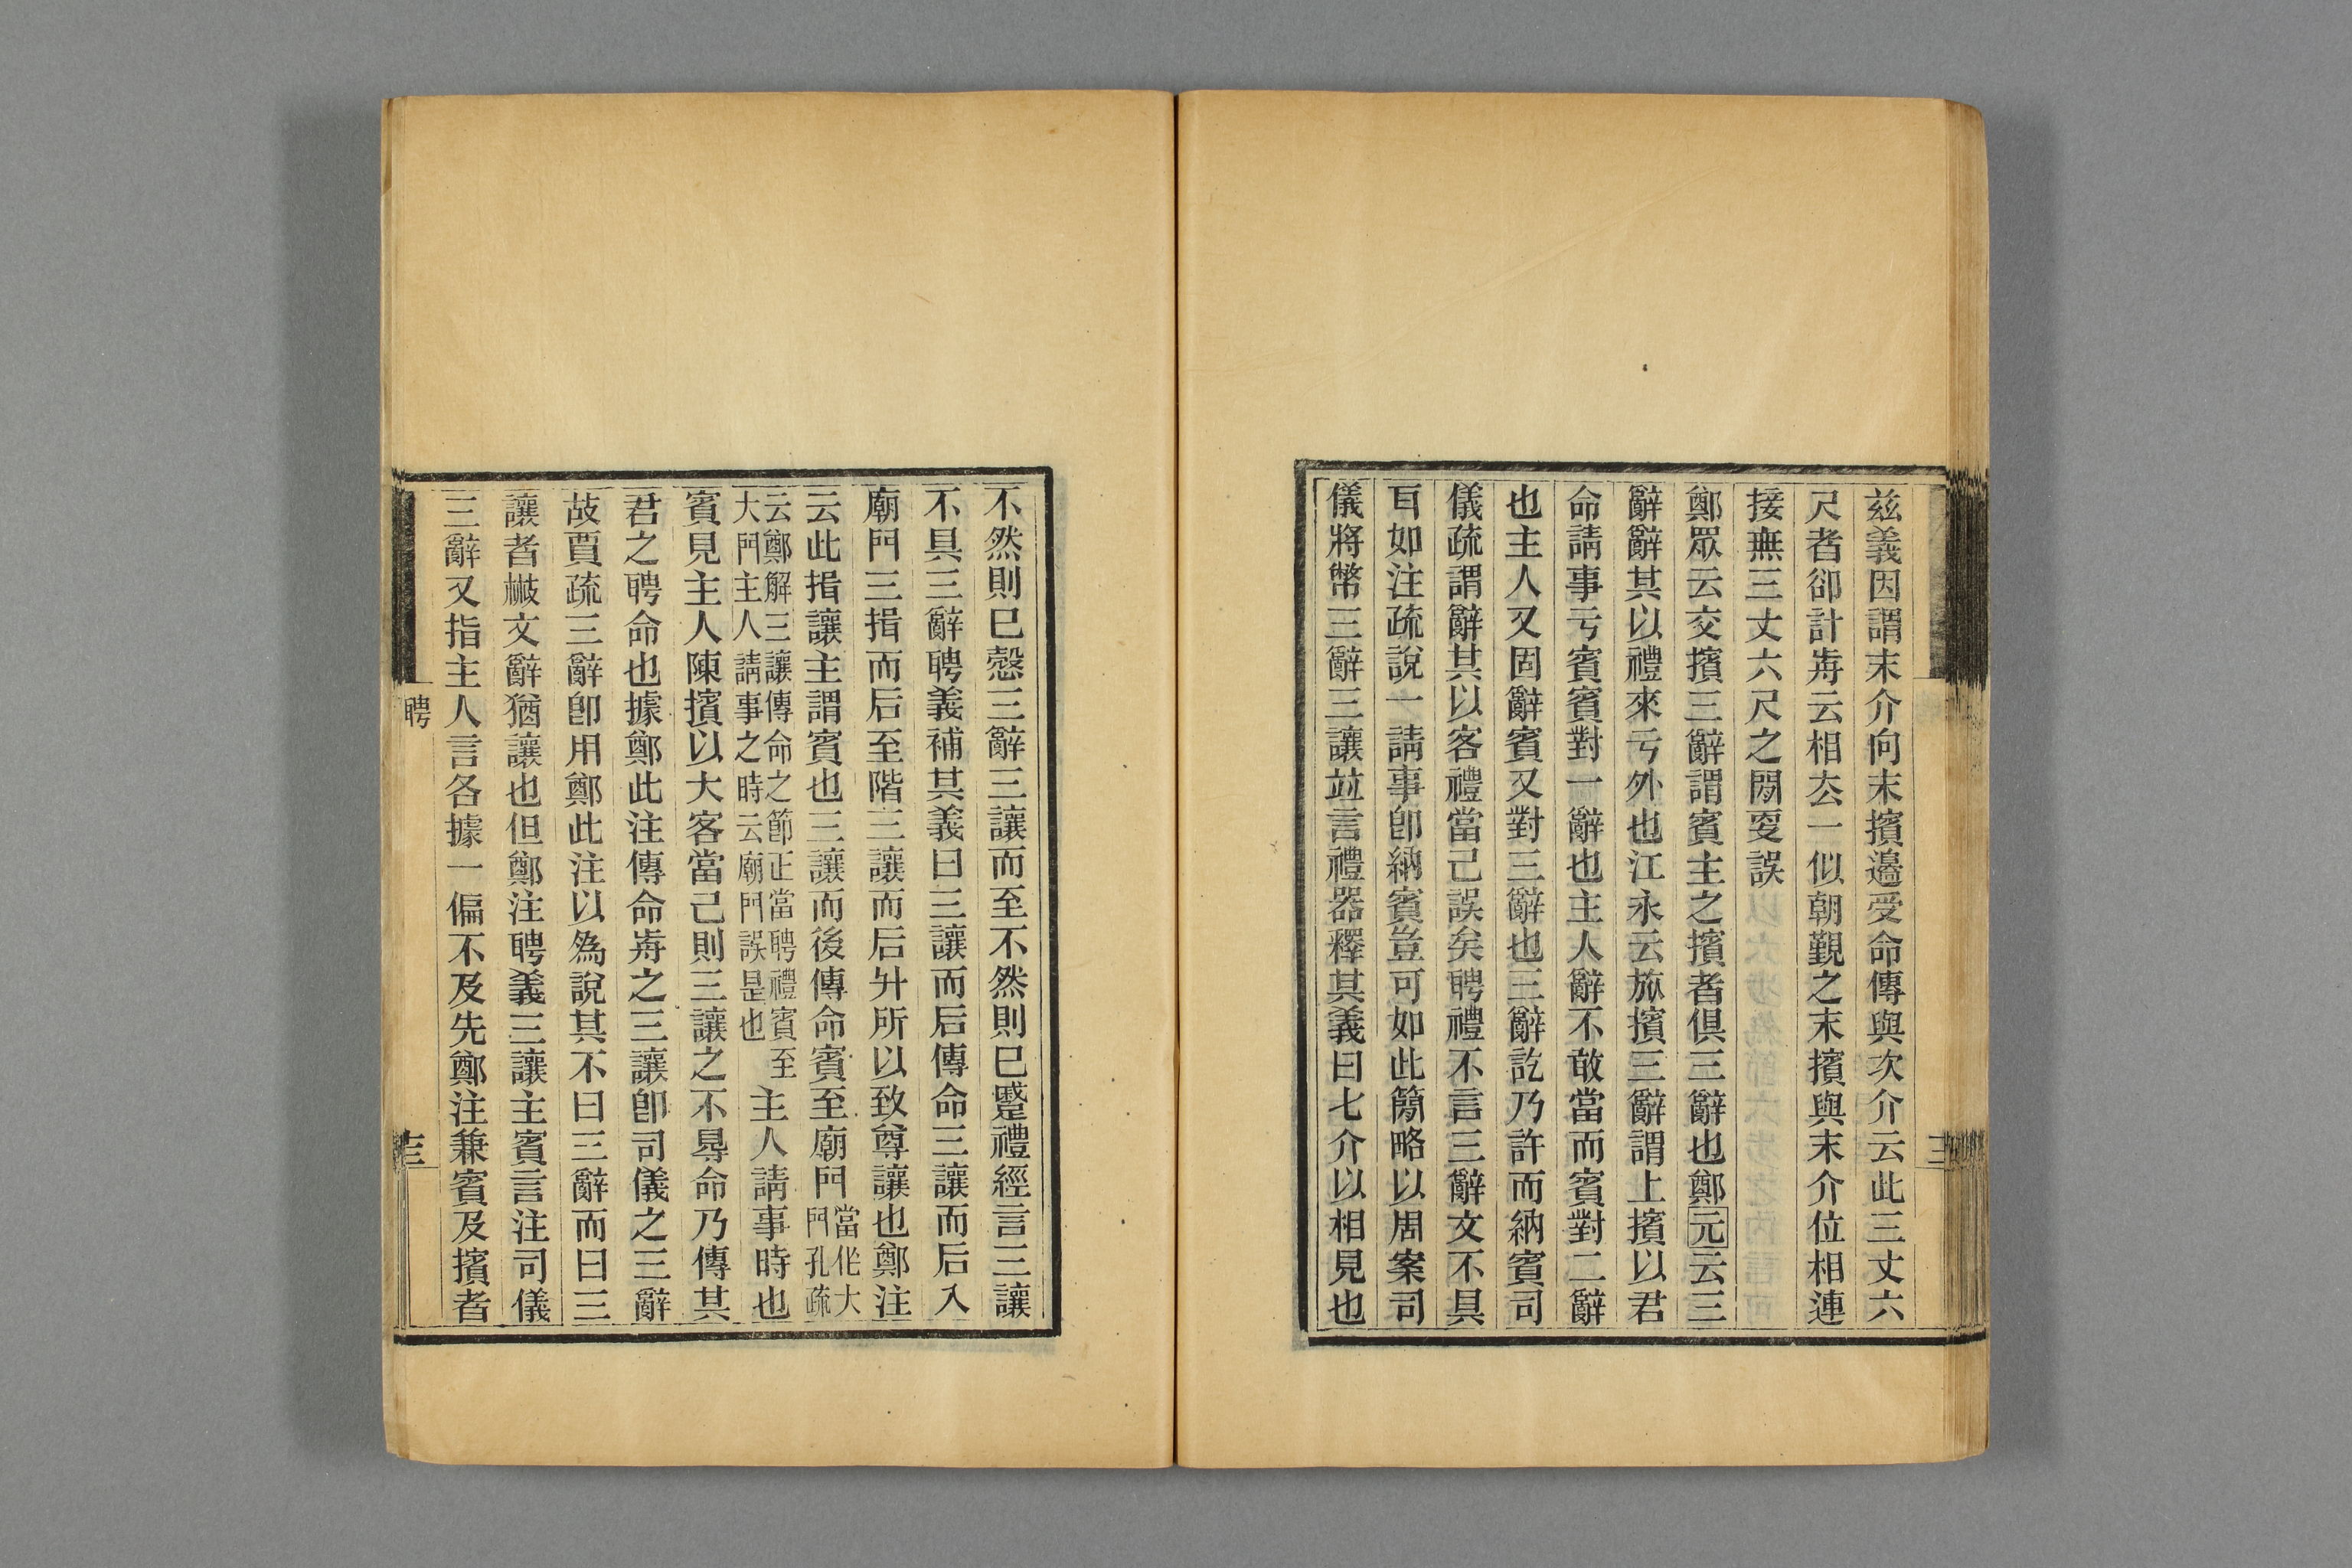 兹義因謂末介向末擯邊受命傳與次介云此三丈六
尺者卻計歬云相厺一似朝覲之末擯與末介位相連
接無三丈六尺之閒㪅誤
鄭眾云交擯三辭謂賓主之擯者俱三辭也鄭元云三
辭辭其以禮來亏外也江永云旅擯三辭謂上擯以君
命請事亏賓賓對一辭也主人辭不敢當而賓對二辭
也主人又固辭賓又對三辭也三辭訖乃許而納賓司
儀疏謂辭其以客禮當己誤矣聘禮不言三辭文不具
耳如注疏說一請事卽納賓豈可如此簡略以周案司
儀將幣三辭三讓竝言禮器釋其義曰七介以相見也
不然則已愨三辭三讓而至不然則已蹙禮經言三讓
不具三辭聘義補其義曰三讓而后傳命三讓而后入
廟門三揖而后至階三讓而后升所以致尊讓也鄭注
云此揖讓主謂賓也三讓而後傳命賓至廟門當作大
門孔疏
云鄭解三讓傳命之節正當聘禮賓至
大門主人請事之時云廟門誤是也
主人請事時也
賓見主人陳擯以大客當己則三讓之不㝵命乃傳其
君之聘命也據鄭此注傳命歬之三讓卽司儀之三辭
故賈疏三辭卽用鄭此注以為說其不曰三辭而曰三
讓者㪚文辭猶讓也但鄭注聘義三讓主賓言注司儀
三辭又指主人言各據一偏不及先鄭注兼賓及擯者
聘
三